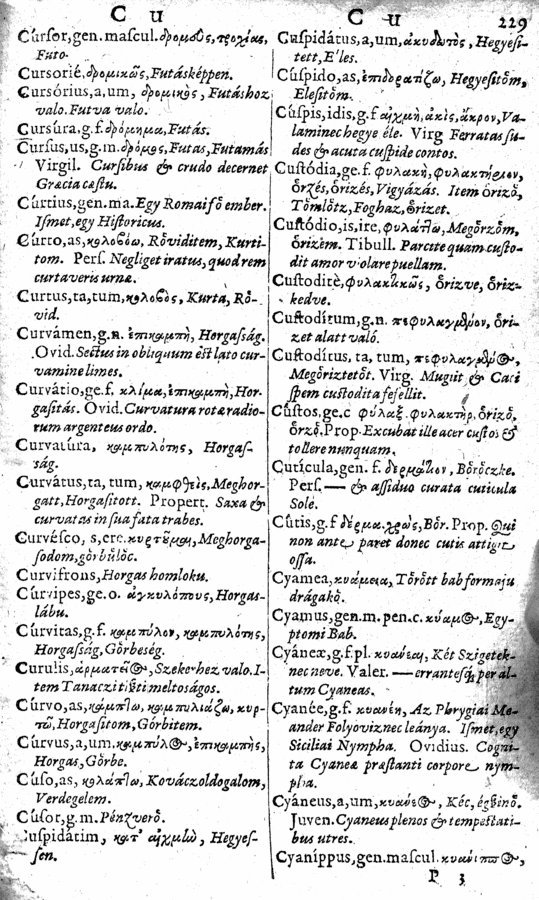 C u
C u
229
Cursor, gen. mascul. δρομεὺς, τροχίας,
Futo.
Cursorié, δρομικῶς, Futásképpen.
Cursórius, a, um, δρομικὸς, Futáshoz
valo. Futva valo.
Cursúra, g. f. δρόμημα, Futás.
Cursus, us, g. m. δρόμος, Futas, Futamás
Virgil. Cursibus & crudo decernet
Græcia cæstu.
Cúrtius, gen. ma. Egy Romai fő ember.
Ismet, egy Historicus.
Cúrto, as, κολοβόω, Rȏviditem, Kurti-
tom. Pers. Negliget iratus, quod rem
curtaveris urnæ.
Curtus, ta, tum, κολοβὸς, Kurta, Rȏ-
vid.
Curvámen, g. n. ἐπικαμπὴ, Horgasság.
Ovid. Sectus in obliquum est lato cur-
vamine limes.
Curvátio, ge. f. κλίμα, ἐπικαμπὴ, Hor-
gasitás. Ovid. Curvatura rotæ radio-
rum argenteus ordo.
Curvatúra, καμπυλότης, Horgas-
ság.
Curvátus, ta, tum, καμφθεὶς, Meghor-
gatt, Horgasitott. Propert. Saxa &
curvatas in sua fata trabes.
Curvésco, s, ere. κυρτοῦμαι, Meghorga-
sodom, gȏrbȗlȏc.
Curvifrons, Horgas homloku.
Cúrvipes, ge. o. ἀγκυλόπους, Horgas-
lábu.
Cúrvitas, g. f. καμπύλον, καμπυλότης,
Horgasság, Gȏrbeség.
Curulis, ἁρματεῖος, Szekerhez valo. I-
tem Tanaczi tisti meltoságos.
Cúrvo, as, κάμπτω, καμπυλιάζω, κυρ-
τῶ, Horgasitom, Gȏrbitem.
Cúrvus, a, um, καμπύλος, ἐπικαμπὴς,
Horgas, Gȏrbe.
Cúso, as, κολάπτω, Kováczoldogalom,
Verdegelem.
Cúsor, g. m. Pénzverȏ.
Cuspidátim, κατ' αἰχμὼ, Hegyes-
sen.
Cuspidátus, a, um, ἀκυδωτὸς, Hegyesi-
tett, E'les.
Cúspido, as, ἐπιδορατίζω, Hegyesitȏm,
Elesitȏm.
Cúspis, idis, g. f αἰχμὴ, ἀκὶς, ἄκρον, Va-
laminec hegye éle. Virg Ferratas su-
des & acuta cuspide contos.
Custódia, ge. f. φυλακὴ, φυλακτήριον,
ȏrzés, ȏrizés, Vigyázás. Item ȏrizȏ,
Tȏmlȏtz, Foghaz, ȏrizet.
Custódio, is, ire, φυλάττω, Megȏrzȏm,
ȏrizem. Tibull. Parcite quam custo-
dit amor violare puellam.
Custodité, φυλακτικῶς, ȏrizve, ȏriz-
kedve.
Custodítum, g. n. πεφυλαγμένον, ȏri-
zet alatt való.
Custodítus, ta, tum, πεφυλαγμένος,
Megȏriztetȏt. Virg. Mugiit & Caci
spem custodita fefellit.
Cústos, ge. c φύλαξ. φυλακτὴρ, ȏrizȏ,
ȏrzȏ. Prop. Excubat ille acer custos &
tollere nunquam.
Cutícula, gen. f. δερμάτιον, Bȏrȏczke.
Pers. — & assiduo curata cuticula
Sole.
Cútis, g. f δέρμα. χρὼς, Bȏr. Prop. Qui
non ante pavet donec cutis attigit
ossa.
Cyamea, κυάμεια, Tȏrȏtt bab formaju
drágakȏ.
Cyamus, gen. m. pen. c. κύαμος, Egy-
ptomi Bab.
Cyáneæ, g. f. pl. κυάνεαι, Két Szigetek-
nec neve. Valer. — errantesq́; per al-
tum Cyaneas.
Cyanée, g. f. κυανέη, Az Phrygiai Me-
ander Folyoviznec leánya. Ismet, egy
Siciliai Nympha. Ovidius. Cogni-
ta Cyaneæ præstanti corpore nym-
pha.
Cyáneus, a, um, κυάνεος, Kéc, égszinȏ.
Juven. Cyaneus plenos & tempestati-
bus utres.
Cyaníppus, gen. mascul. κυάνιππος,
P 3